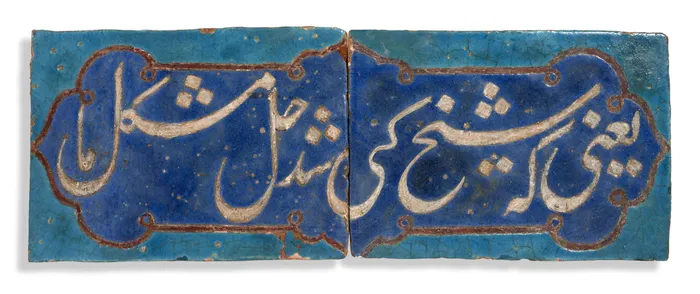 یعنی که شیخ کی شد حل مشکل ما